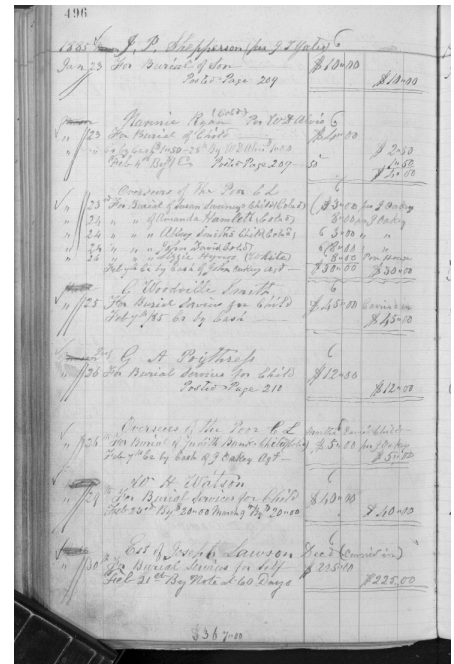 496
1885 J. P. Shepperson (per J T Yates)
Jan 23 For Burial of Son $10.00
Posted Page 209 $10.00
Nannie Ryan (Cold) Per W H Alvis
" 23 For Burial of Child $4.00
$2.50
Feb 4th By Posted Page 209 50
Overseers of the Poor C L
" 23 For Burial of Child (Cold) $3.00 per J Oakey
" 24 " " of Amanda Hamlett (Cold) 8.00 per J Oakey
" 24 " " Abbey Smiths Child (Cold) 3.00 " "
" 24 " " John David (Cold) 8.00 " "
" 26 " " Lizzie Hymes (White) 8.00 Poor House
Feb 7th Cr by Cash of John Oakey agt $30.00 $30.00
G Woodville Smith
" 25 For Burial Service for Child $45.00
Feb 7th 85 Cr by Cash $45.00
G A Poythress
" 30 For Burial Service for Child $12.50
Posted Page 210 $12.00
Overseers of the Poor C L
" 28 For Burial of Judith Banks Child $5.00 per J Oakey
Feb 7th Cr by Cash J Oakey Agt $5.00
W H Watson
" 29 For Burial Services for Child $40.00
Feb 24th By $20.00 March 9th By $20.00 $40.00
Est of Joseph Lawson Decd
" 30 For Burial Services for Self $225.00
Feb 21st By Note 60 Days $225.00
$367.00